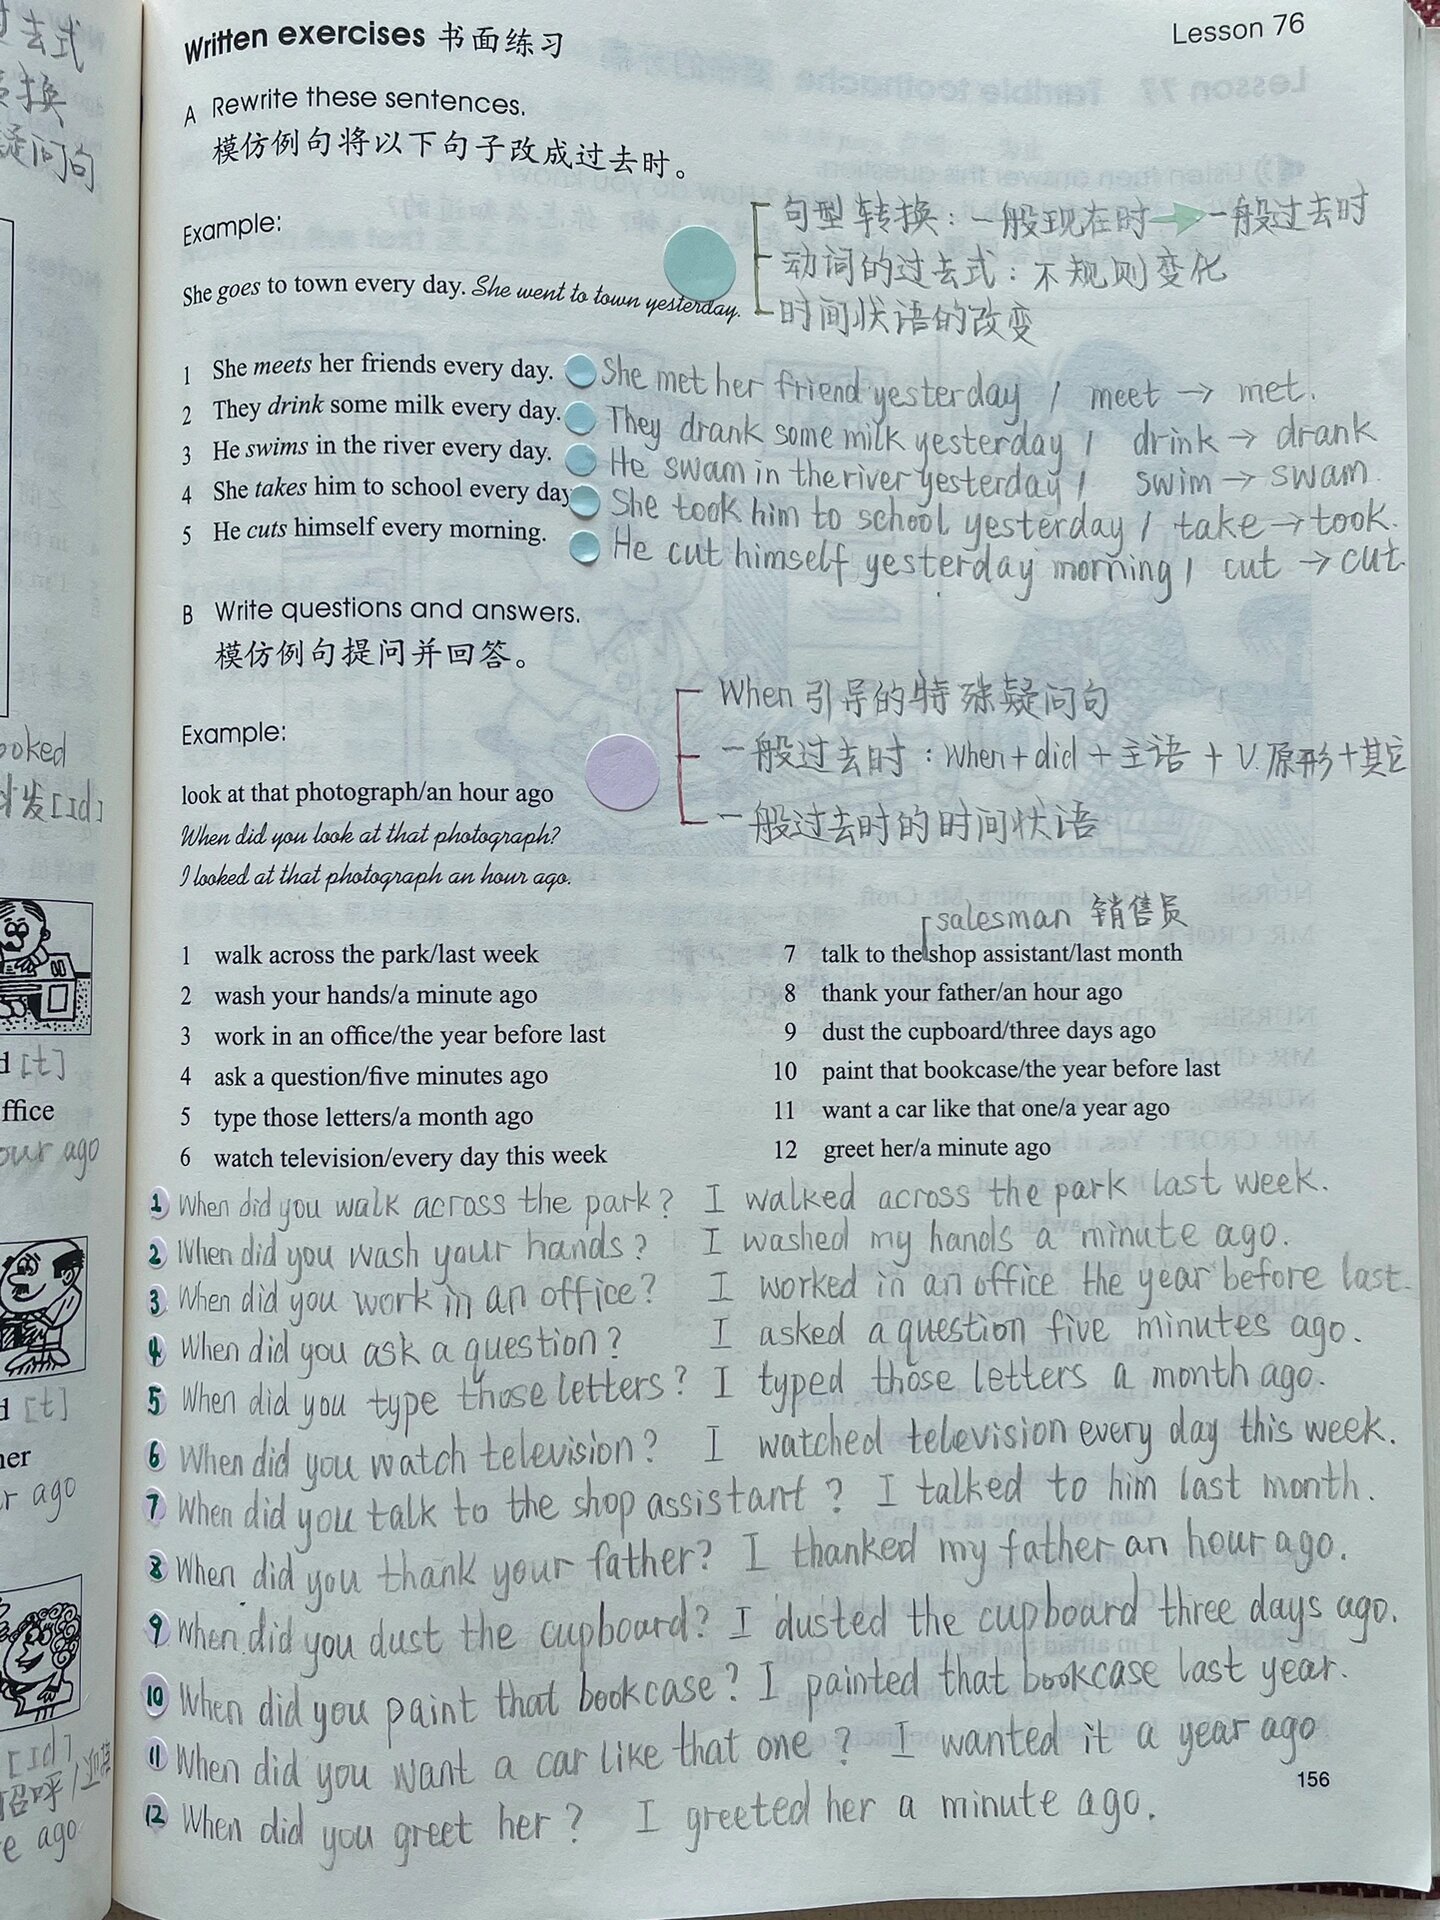 Written exercises 书面练习
Lesson 76
A Rewrite these sentences.
模仿例句将以下句子改成过去时。
Example:
句型转换：一般现在时→一般过去时
动词的过去式：不规则变化
时间状语的改变
She goes to town every day. She went to town yesterday.
1 She meets her friends every day. She met her friend yesterday / meet → met.
2 They drink some milk every day. They drank some milk yesterday / drink → drank
3 He swims in the river every day. He swam in the river yesterday / swim → swam
4 She takes him to school every day She took him to school yesterday / take → took.
5 He cuts himself every morning. He cut himself yesterday morning / cut → cut
B Write questions and answers.
模仿例句提问并回答。
Example:
When 引导的特殊疑问句
一般过去时：When + did + 主语 + V.原形 + 其它
一般过去时的时间状语
look at that photograph/an hour ago
When did you look at that photograph?
I looked at that photograph an hour ago.
salesman 销售员
1 walk across the park/last week
2 wash your hands/a minute ago
3 work in an office/the year before last
4 ask a question/five minutes ago
5 type those letters/a month ago
6 watch television/every day this week
7 talk to the shop assistant/last month
8 thank your father/an hour ago
9 dust the cupboard/three days ago
10 paint that bookcase/the year before last
11 want a car like that one/a year ago
12 greet her/a minute ago
1 When did you walk across the park? I walked across the park last week.
2 When did you wash your hands? I washed my hands a minute ago.
3 When did you work in an office? I worked in an office the year before last.
4 When did you ask a question? I asked a question five minutes ago.
5 When did you type those letters? I typed those letters a month ago.
6 When did you watch television? I watched television every day this week.
7 When did you talk to the shop assistant? I talked to him last month.
8 When did you thank your father? I thanked my father an hour ago.
9 When did you dust the cupboard? I dusted the cupboard three days ago.
10 When did you paint that bookcase? I painted that bookcase last year.
11 When did you want a car like that one? I wanted it a year ago
12 When did you greet her? I greeted her a minute ago.
156